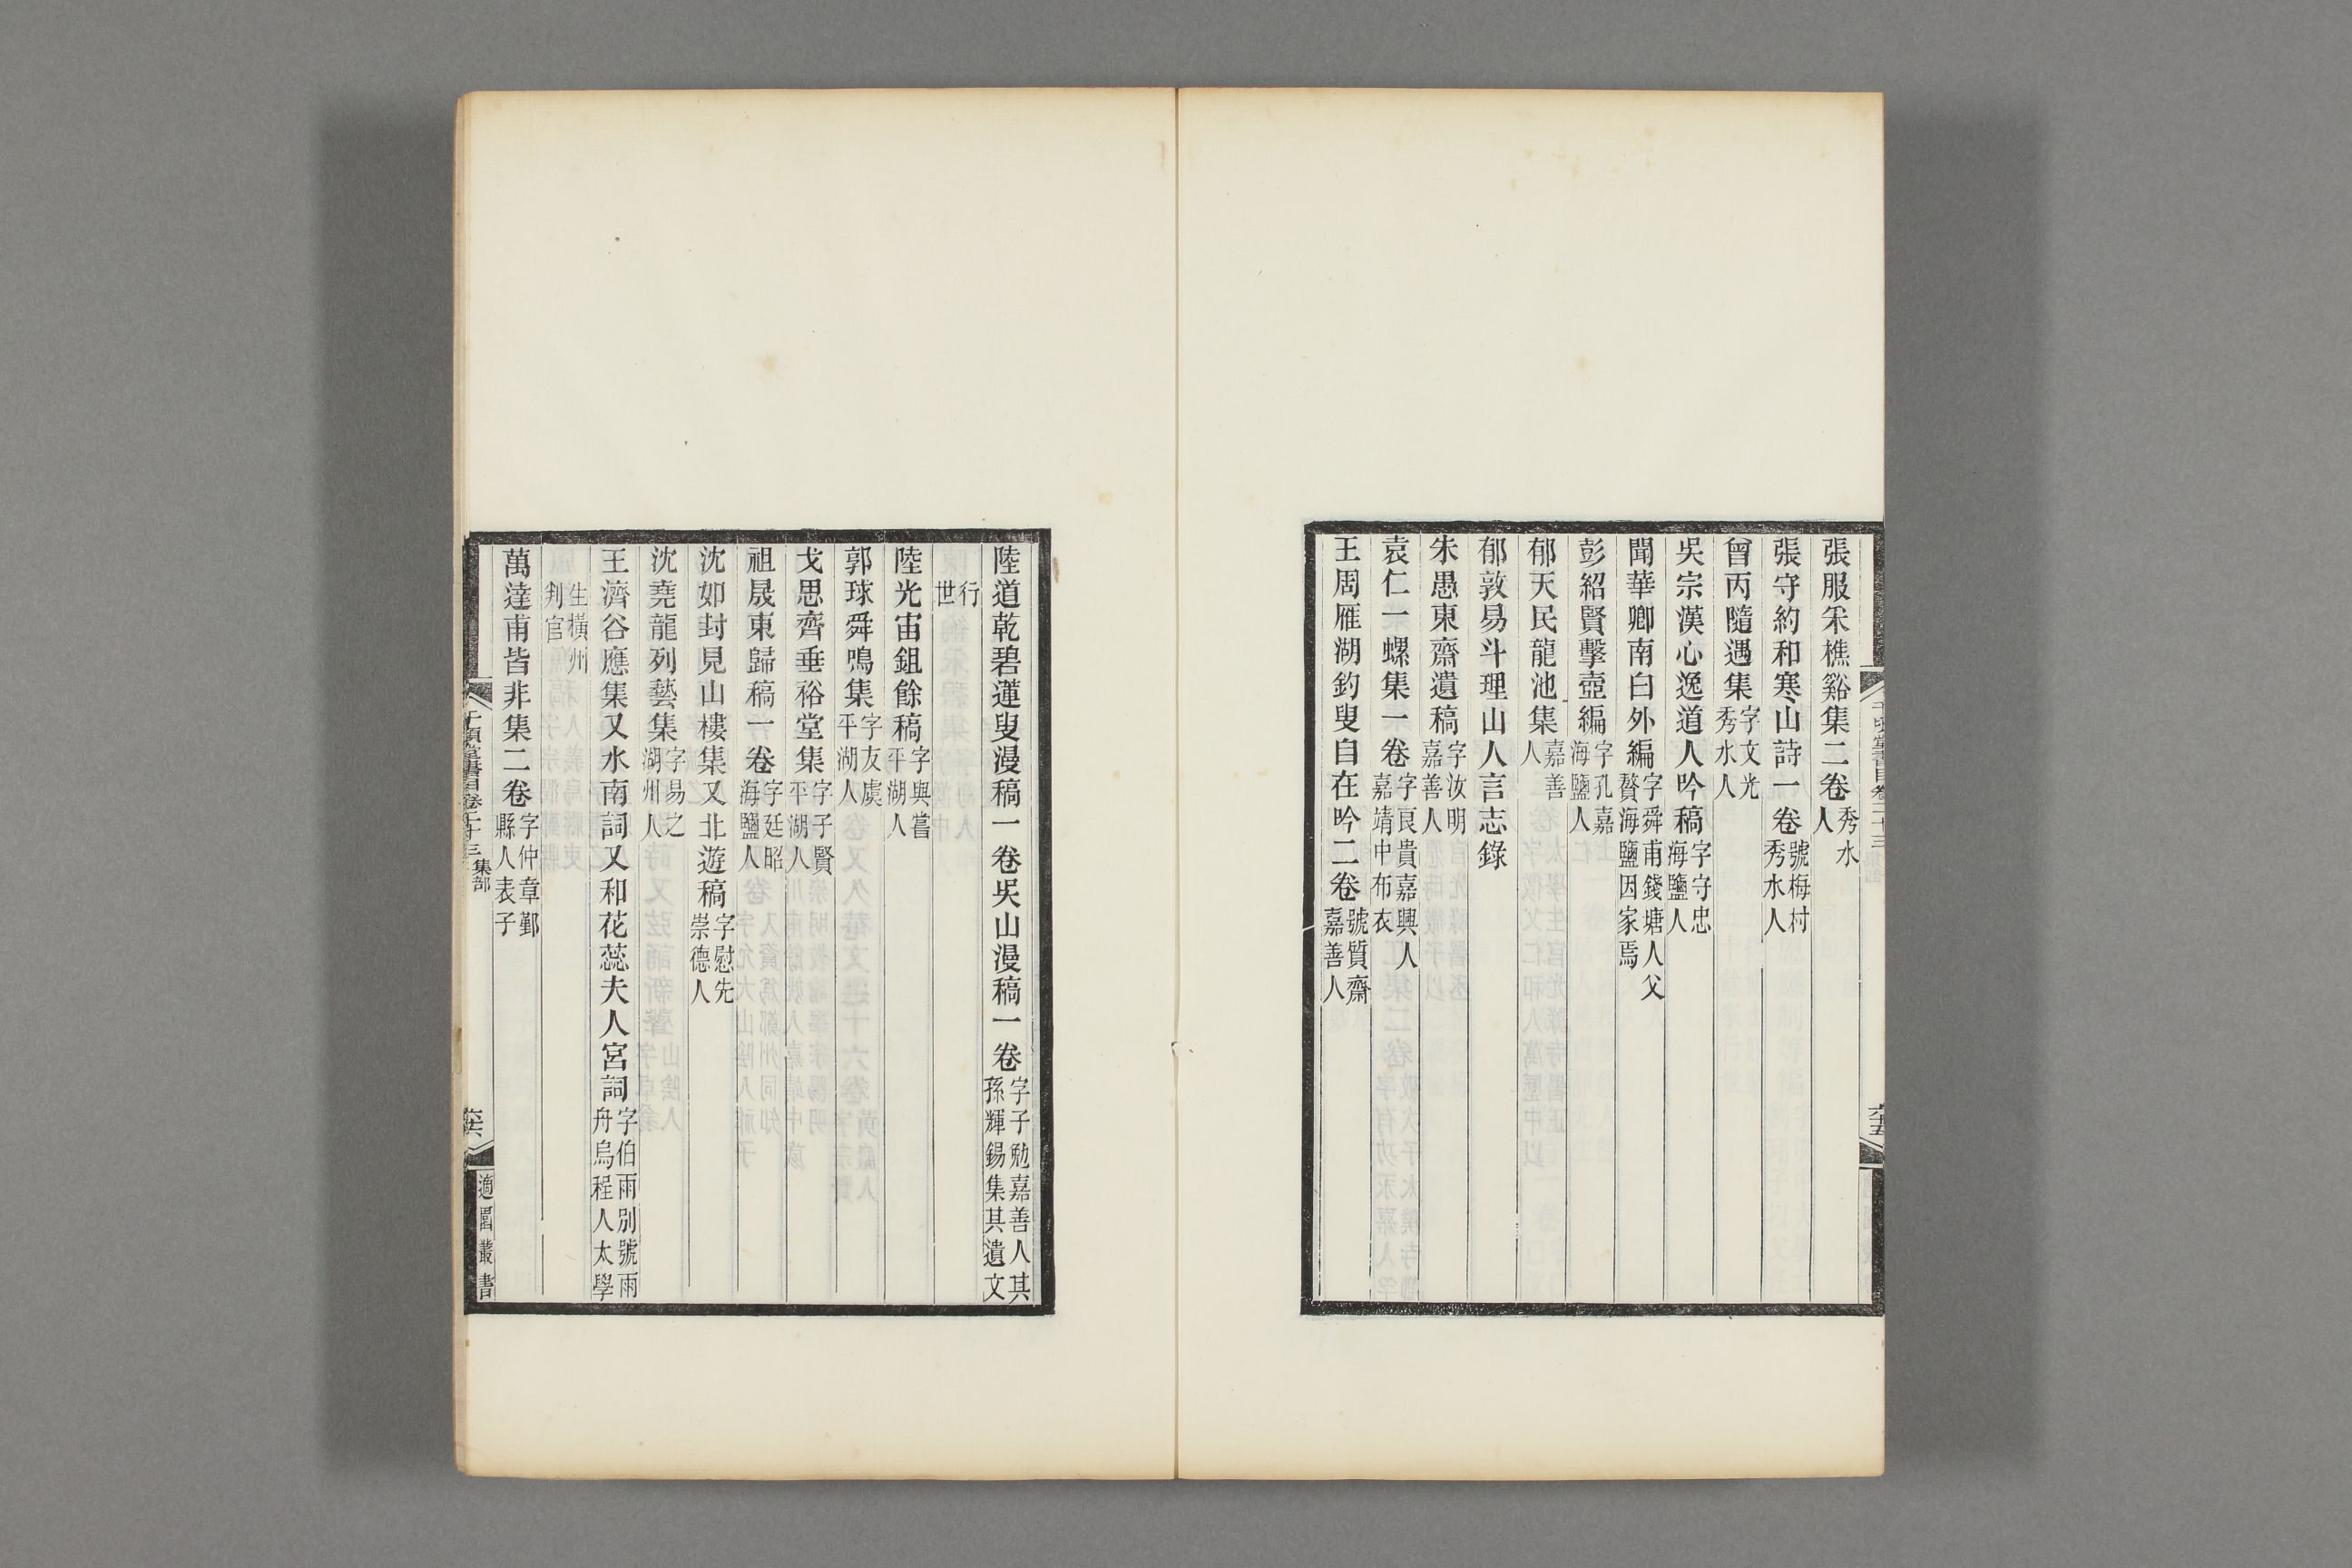 張服采樵谿集二卷秀水人
張守約和寒山詩一卷號梅村秀水人
曾丙隨遇集字文光秀水人
吳宗漢心逸道人吟稿字守忠海鹽人
聞華卿南白外編字舜甫錢塘人父贅海鹽因家焉
彭紹賢擊壺編字孔嘉海鹽人
郁天民龍池集嘉善人
郁敦易斗理山人言志錄
朱愚東齋遺稿字汝明嘉善人
袁仁一螺集一卷字良貴嘉興人嘉靖中布衣
王周雁湖釣叟自在吟二卷號質齋嘉善人
陸道乾碧蓮叟漫稿一卷吳山漫稿一卷字子勉嘉善人其孫輝錫集其遺文
行世
陸光宙鉏餘稿字與嘗平湖人
郭球舜鳴集字友虞平湖人
戈思齊垂裕堂集字子賢平湖人
祖晟東歸稿一卷字廷昭海鹽人
沈如封見山樓集又北遊稿字慰先崇德人
沈堯龍列藝集字易之湖州人
王濟谷應集又水南詞又和花蕊夫人宮詞字伯雨別號雨舟烏程人太學
生橫州判官
萬達甫皆非集二卷字仲章鄞縣人表子
千頃堂書目卷二十三 集部
六十六
適園叢書